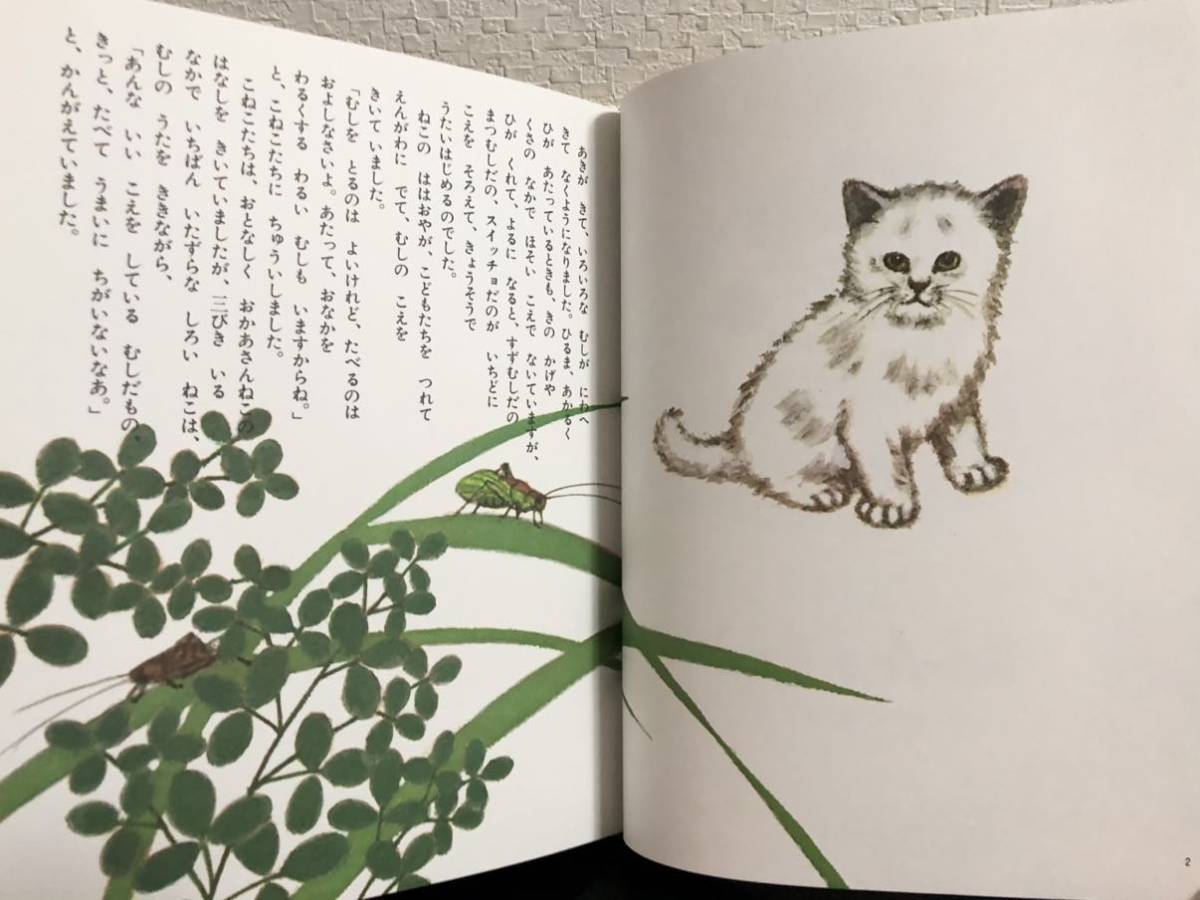 あきが きて、いろいろな むしが にわへ
きて なくようになりました。ひるま、あかるく
ひが あたっているときも、きの かげや
くさの なかで ほそい こえで ないていますが、
ひが くれて、よるに なると、すずむしだの
まつむしだの、スイッチョだのが いちどに
こえを そろえて、きょうそうで
うたいはじめるのでした。
ねこの ははおやが、こどもたちを つれて
えんがわに でて、むしの こえを
きいて いました。
「むしを とるのは よいけれど、たべるのは
およしなさいよ。あたって、おなかを
わるくする わるい むしも いますからね。」
と、こねこたちに ちゅういしました。
こねこたちは、おとなしく おかあさんねこの
はなしを きいていましたが、三びき いる
なかで いちばん いたずらな しろい ねこは、
むしの うたを ききながら、
「あんな いい こえを している むしだもの、
きっと、たべて うまいに ちがいないなあ。」
と、かんがえていました。
2